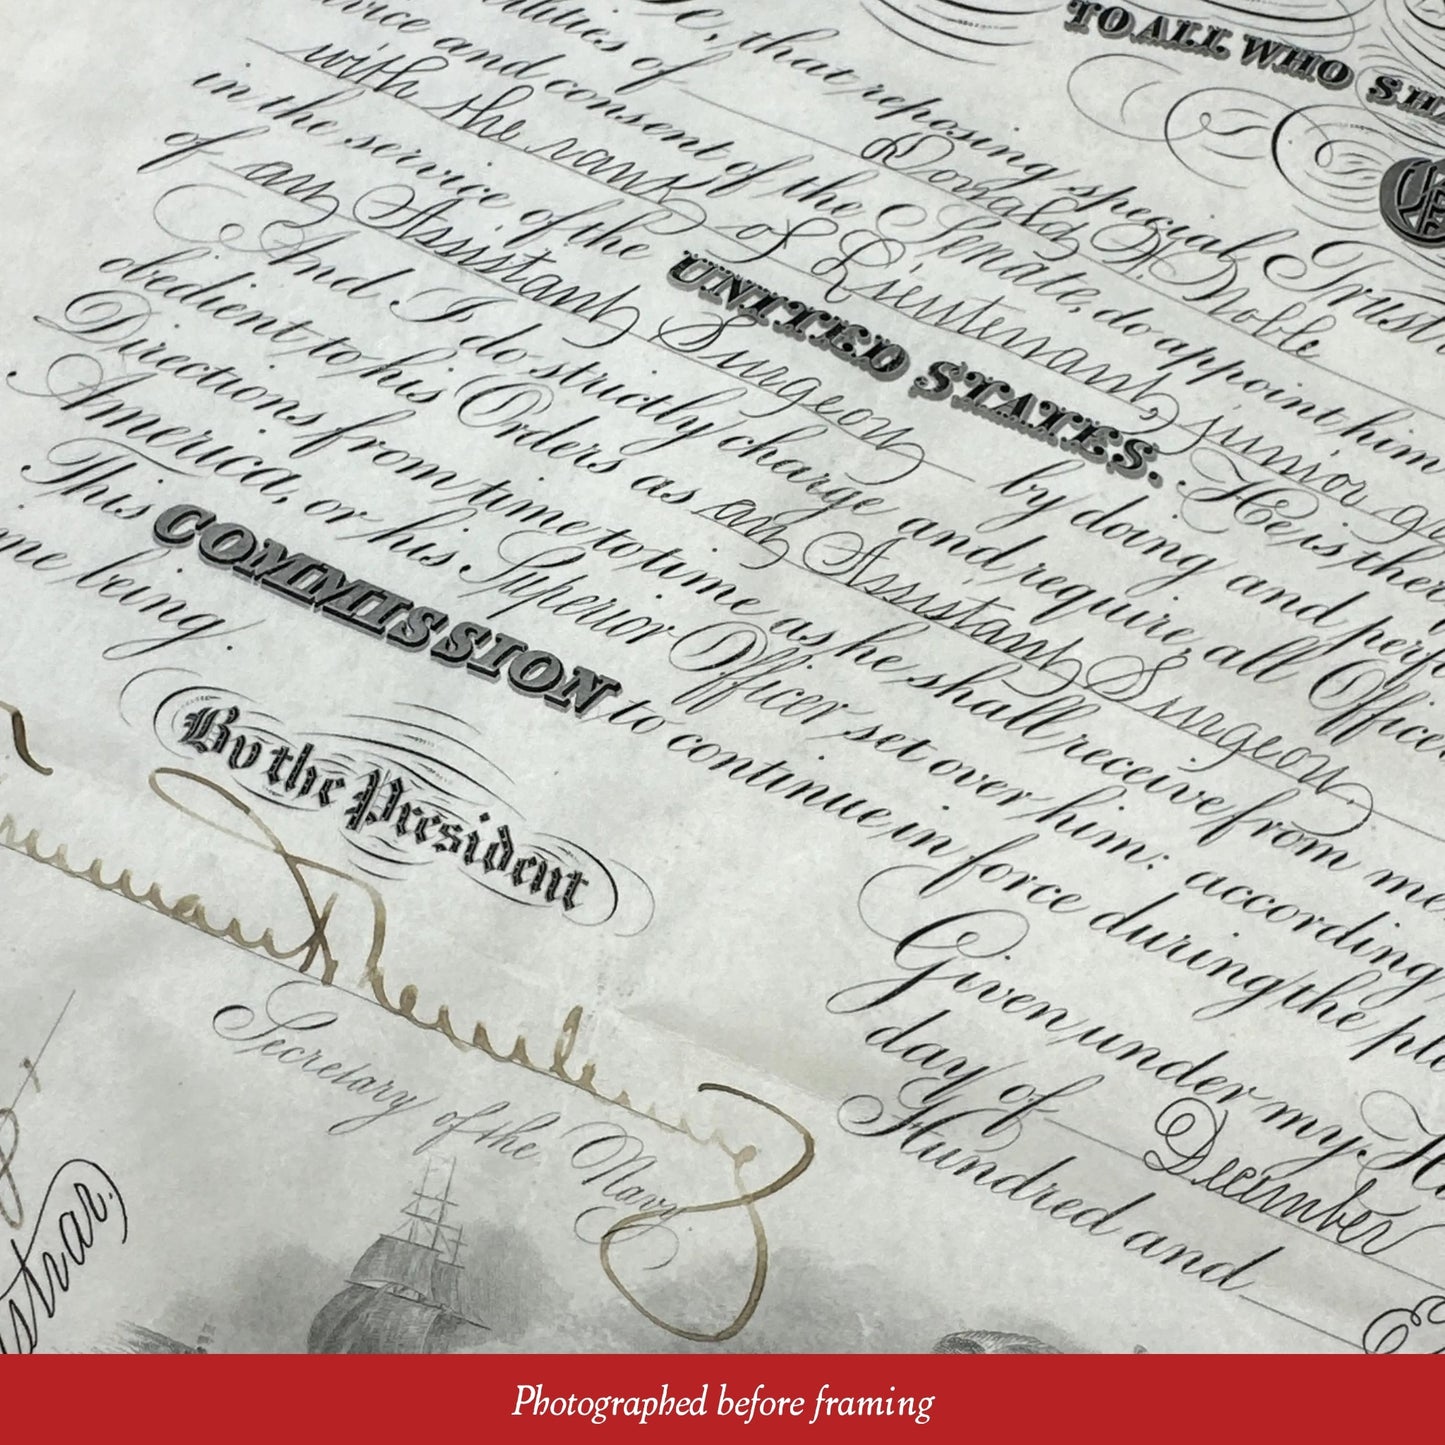 TO ALL WHO SH
that reposing special Trust
of Donald Noble
vice and consent of the Senate, do appoint him
with the rank of Lieutenant, junior gr
in the service of the UNITED STATES. He is ther
of an Assistant Surgeon by doing and perf
And I do strictly charge and require all Office
obedient to his Orders as an Assistant Surgeon.
Directions from time to time as he shall receive from me,
America, or his Superior Officer set over him: according
This COMMISSION to continue in force during the ple
me being.
Given under my H
day of December
Hundred and E
By the President
Secretary of the Navy
istrar.
Photographed before framing